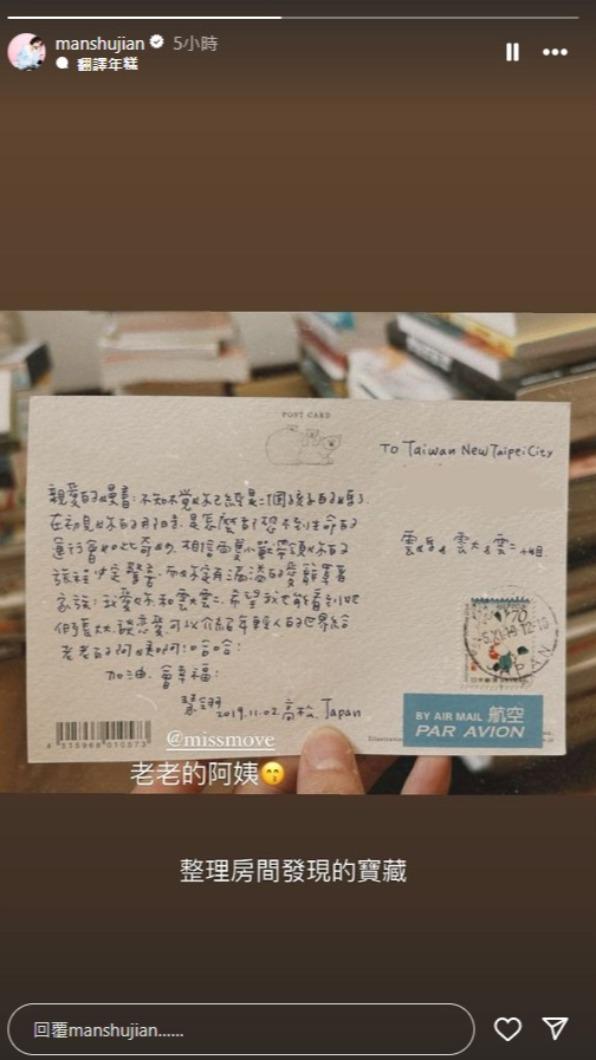 manshujian 5小時
翻譯年糕
POST CARD
TO Taiwan New Taipei City
親愛的慢書：不知不覺妳已經是二個孩子的媽了.
在初見妳的那時，是怎麼都想不到生命的
進行會如此奇妙. 相信兩隻小獸帶領妳的
旅程 家族：我愛妳和雲大雲二. 希望我也能看到他
們長大、談戀愛可以介紹年輕人的世界給
老老的阿姨啊！哈哈！
加油. 會幸福！
2019.11.02 高松, Japan
雲 雲大 雲二
70
JAPAN
日本郵便
BY AIR MAIL 航空
PAR AVION
4 515968 010573
@missmove
老老的阿姨😙
整理房間發現的寶藏
回覆manshujian......